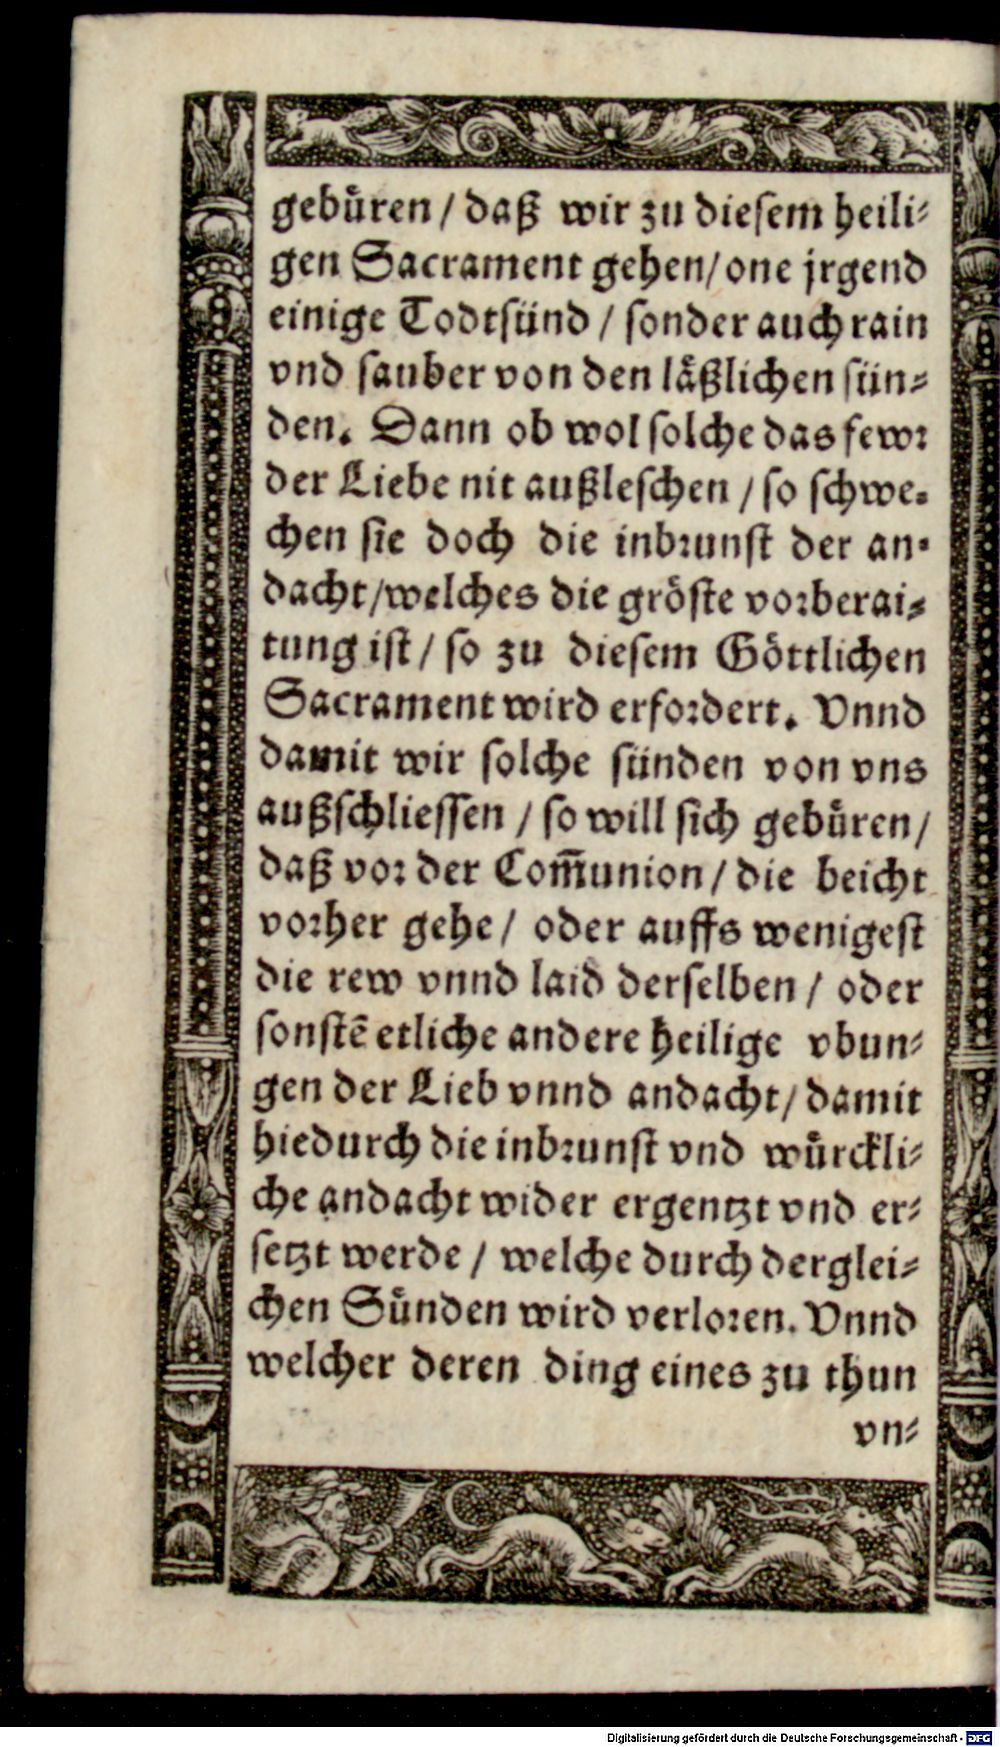 gebuͤren / daß wir zu diesem heili⸗
gen Sacrament gehen / one jrgend
einige Todtsünd / sonder auch rain
vnd sauber von den laͤßlichen sün⸗
den. Dann ob wol solche das fewr
der Liebe nit außleschen / so schwe⸗
chen sie doch die inbrunst der an⸗
dacht / welches die gröste vorberai⸗
tung ist / so zu diesem Göttlichen
Sacrament wird erfordert. Vnnd
damit wir solche sünden von vns
außschliessen / so will sich gebuͤren /
daß vor der Com̅union / die beicht
vorher gehe / oder auffs wenigest
die rew vnnd laid derselben / oder
sonstẽ etliche andere heilige vbun⸗
gen der Lieb vnnd andacht / damit
hiedurch die inbrunst vnd wuͤrckli⸗
che andacht wider ergentzt vnd er⸗
setzt werde / welche durch derglei⸗
chen Suͤnden wird verloren. Vnnd
welcher deren ding eines zu thun
vn⸗
Digitalisierung gefördert durch die Deutsche Forschungsgemeinschaft - DFG